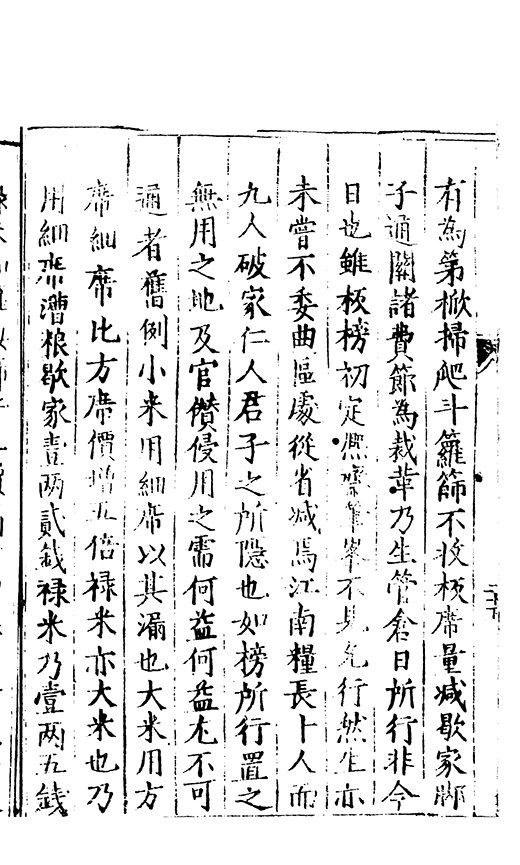 有為第掀掃爬斗籮篩不收板席量減歇家脚
子通關諸費節為裁革乃生管倉日所行非今
日也雖板榜初定不見允行然生亦
未嘗不委曲區處從省減焉江南糧長卜人而
九人破家仁人君子之所隠也如榜所行置之
無用之地及官儹侵用之需何益何益尤不可
通者舊例小米用細席以其漏也大米用方
席細席比方席價增五倍禄米亦大米也乃
用細席漕粮歇家壹两貳錢禄米乃壹两五錢